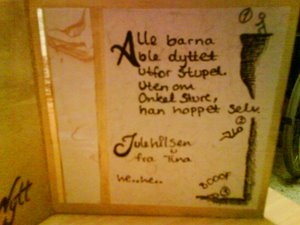 Alle barna
ble dyttet
utfor stupet.
Uten om
Onkel Sture,
han hoppet selv.
Julehilsen
fra Tina
he..he..
Nytt
1
2
3